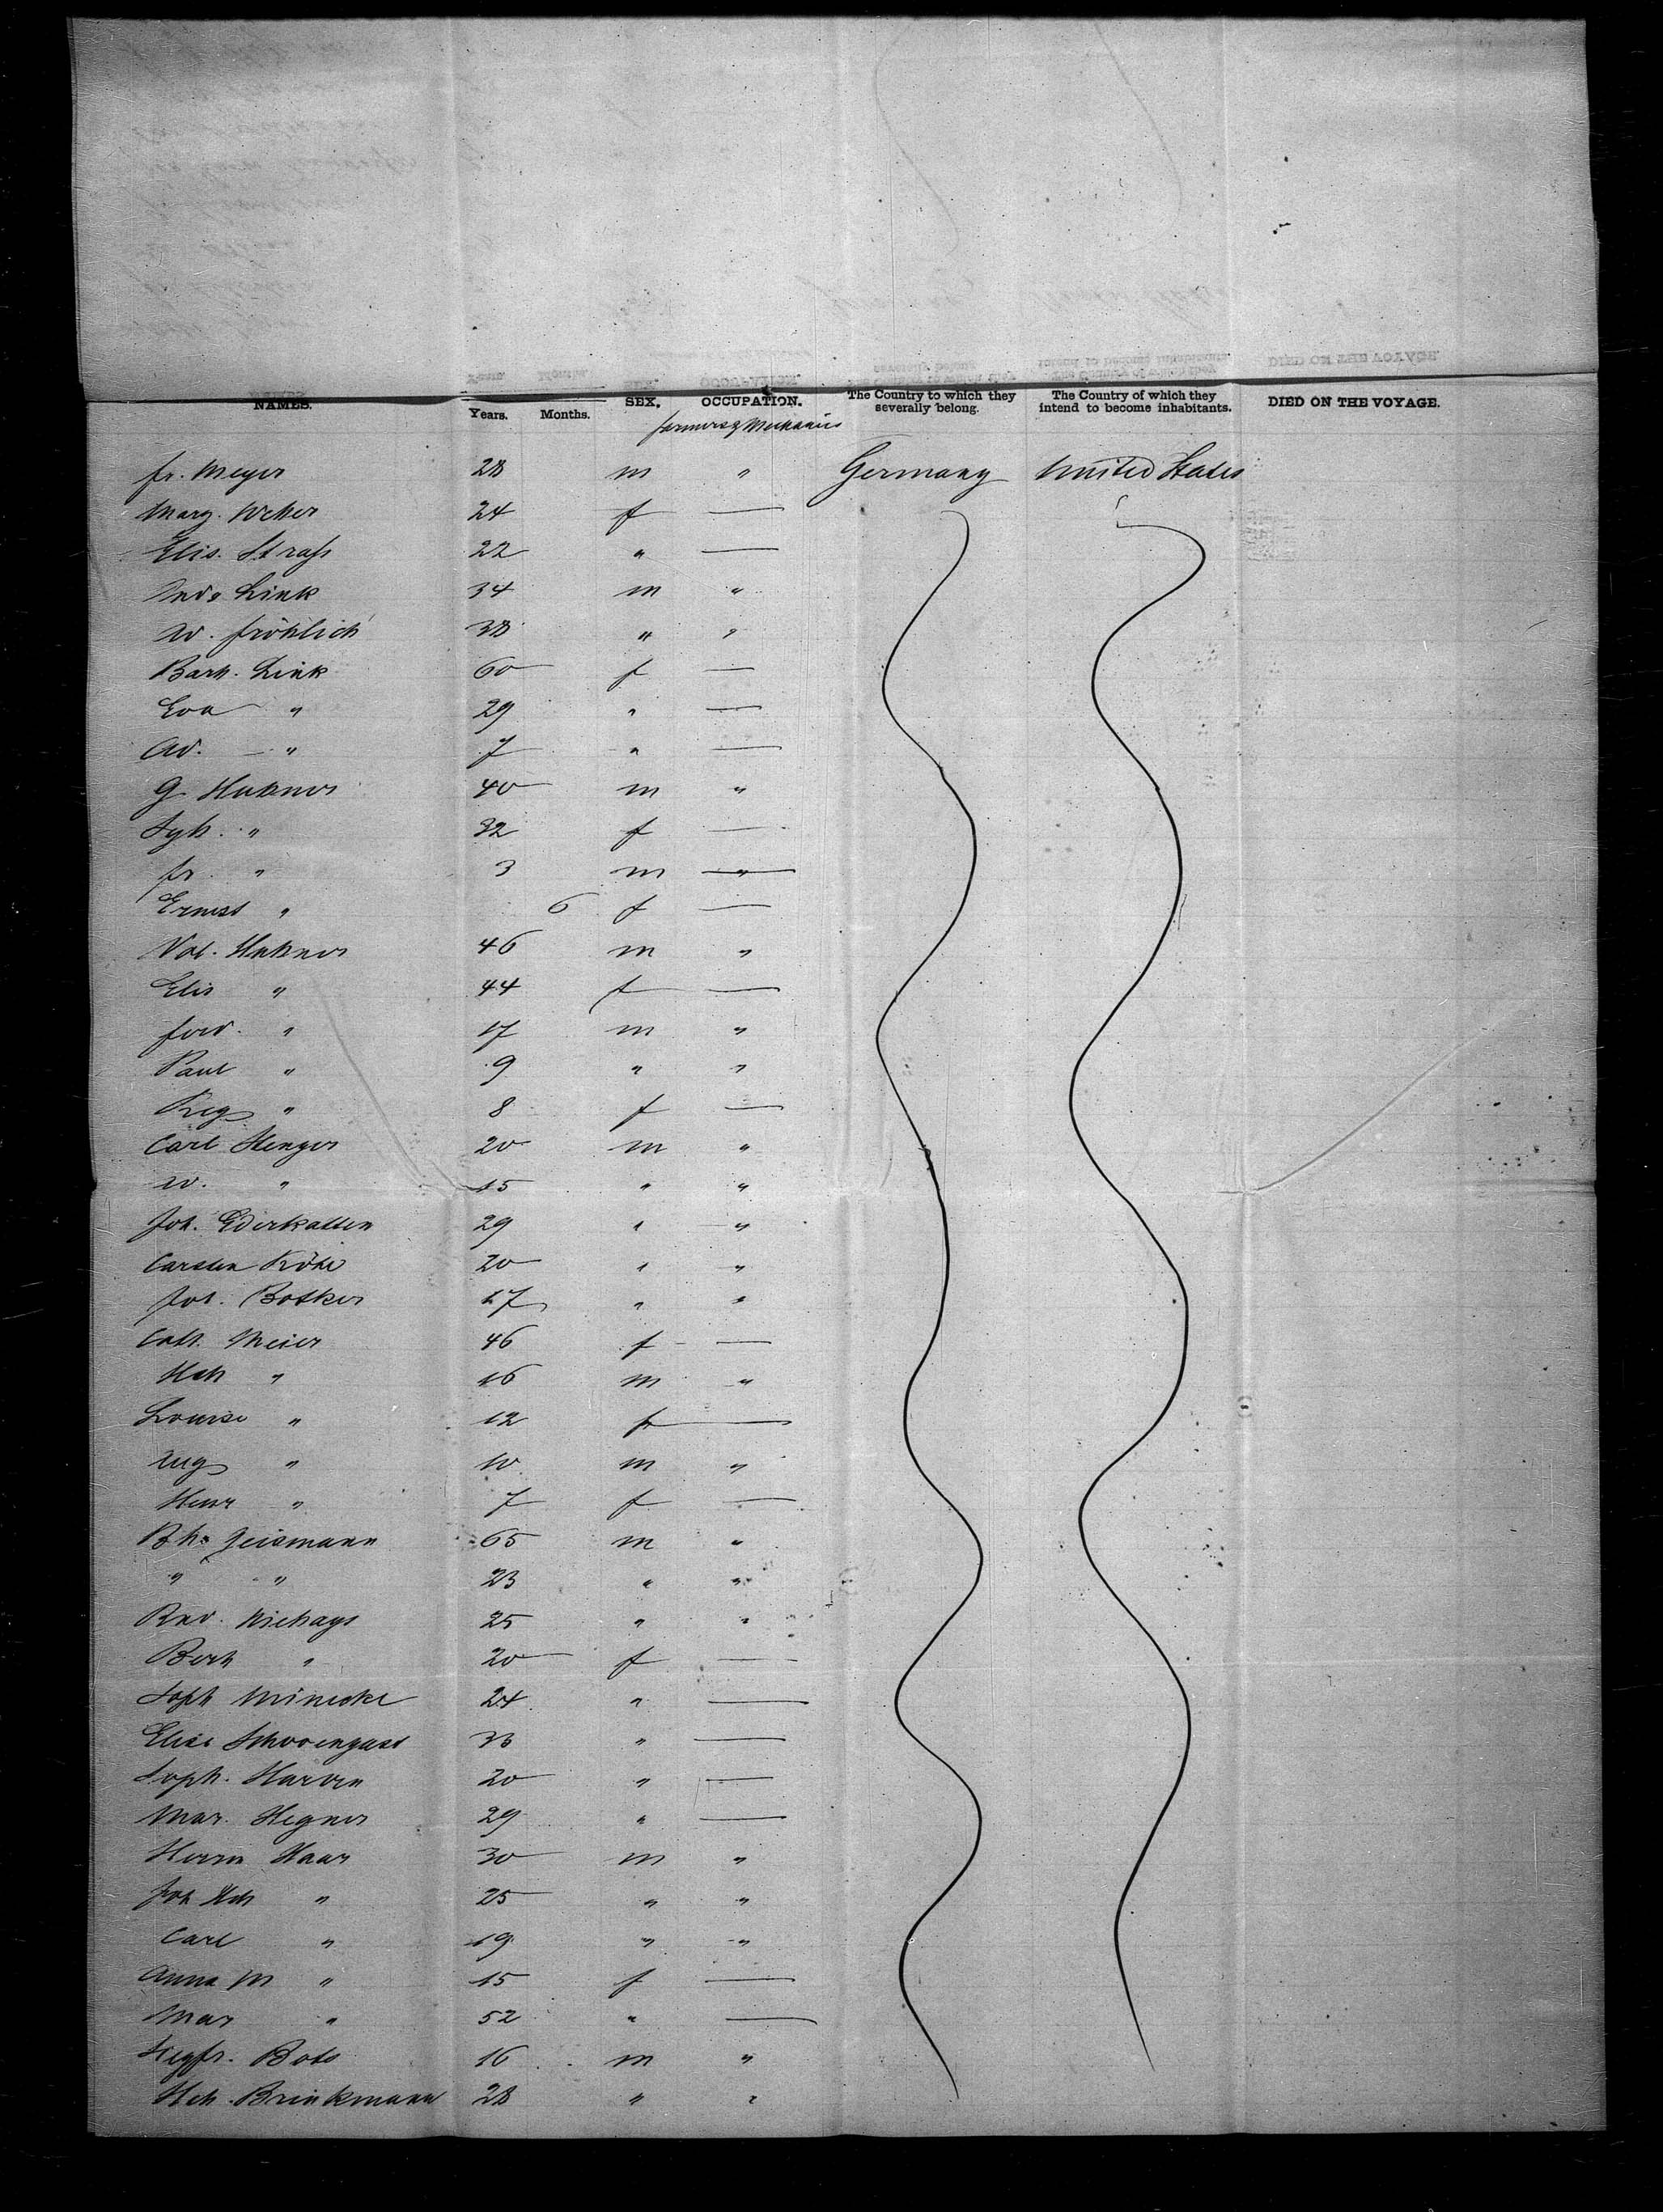 NAMES. Years. Months. SEX. OCCUPATION. The Country to which they severally belong. The Country of which they intend to become inhabitants. DIED ON THE VOYAGE.
farmers & Mechanics
fr. Meyer 28 m " Germany United States
Marg. Weber 24 f —
Elis. Strass 22 " —
Link 34 m "
W. fröhlich 38 " "
Barb. Link 60 f —
Eva " 29 " —
Ad. " 7 " —
G. Hubner 40 m "
" 32 f —
fr. " 3 m "
Ernest " 6 f —
Val. Hubner 46 m "
Elis " 44 f —
ferd. " 17 m "
Paul " 9 " "
Reg " 8 f —
Carl Stenger 20 m "
W. " 15 " "
Joh. 29 " "
Carsten 20 " "
Joh. 17 " "
Cath. Meier 46 f —
Hch " 16 m "
Louise " 12 f —
Aug " 10 m "
Henr " 7 f —
Bh. Geismann 65 m "
" " 23 " "
25 " "
" 20 f —
Soph 24 " —
Elise " —
Soph. 20 " —
Mar. Hegner 29 " —
Herm Haar 30 m "
Joh Hch " 25 " "
Carl " 19 " "
Anna M " 15 f —
Mar " 52 " —
Siegfr. 16 m "
Hch. Brinkmann 28 " "